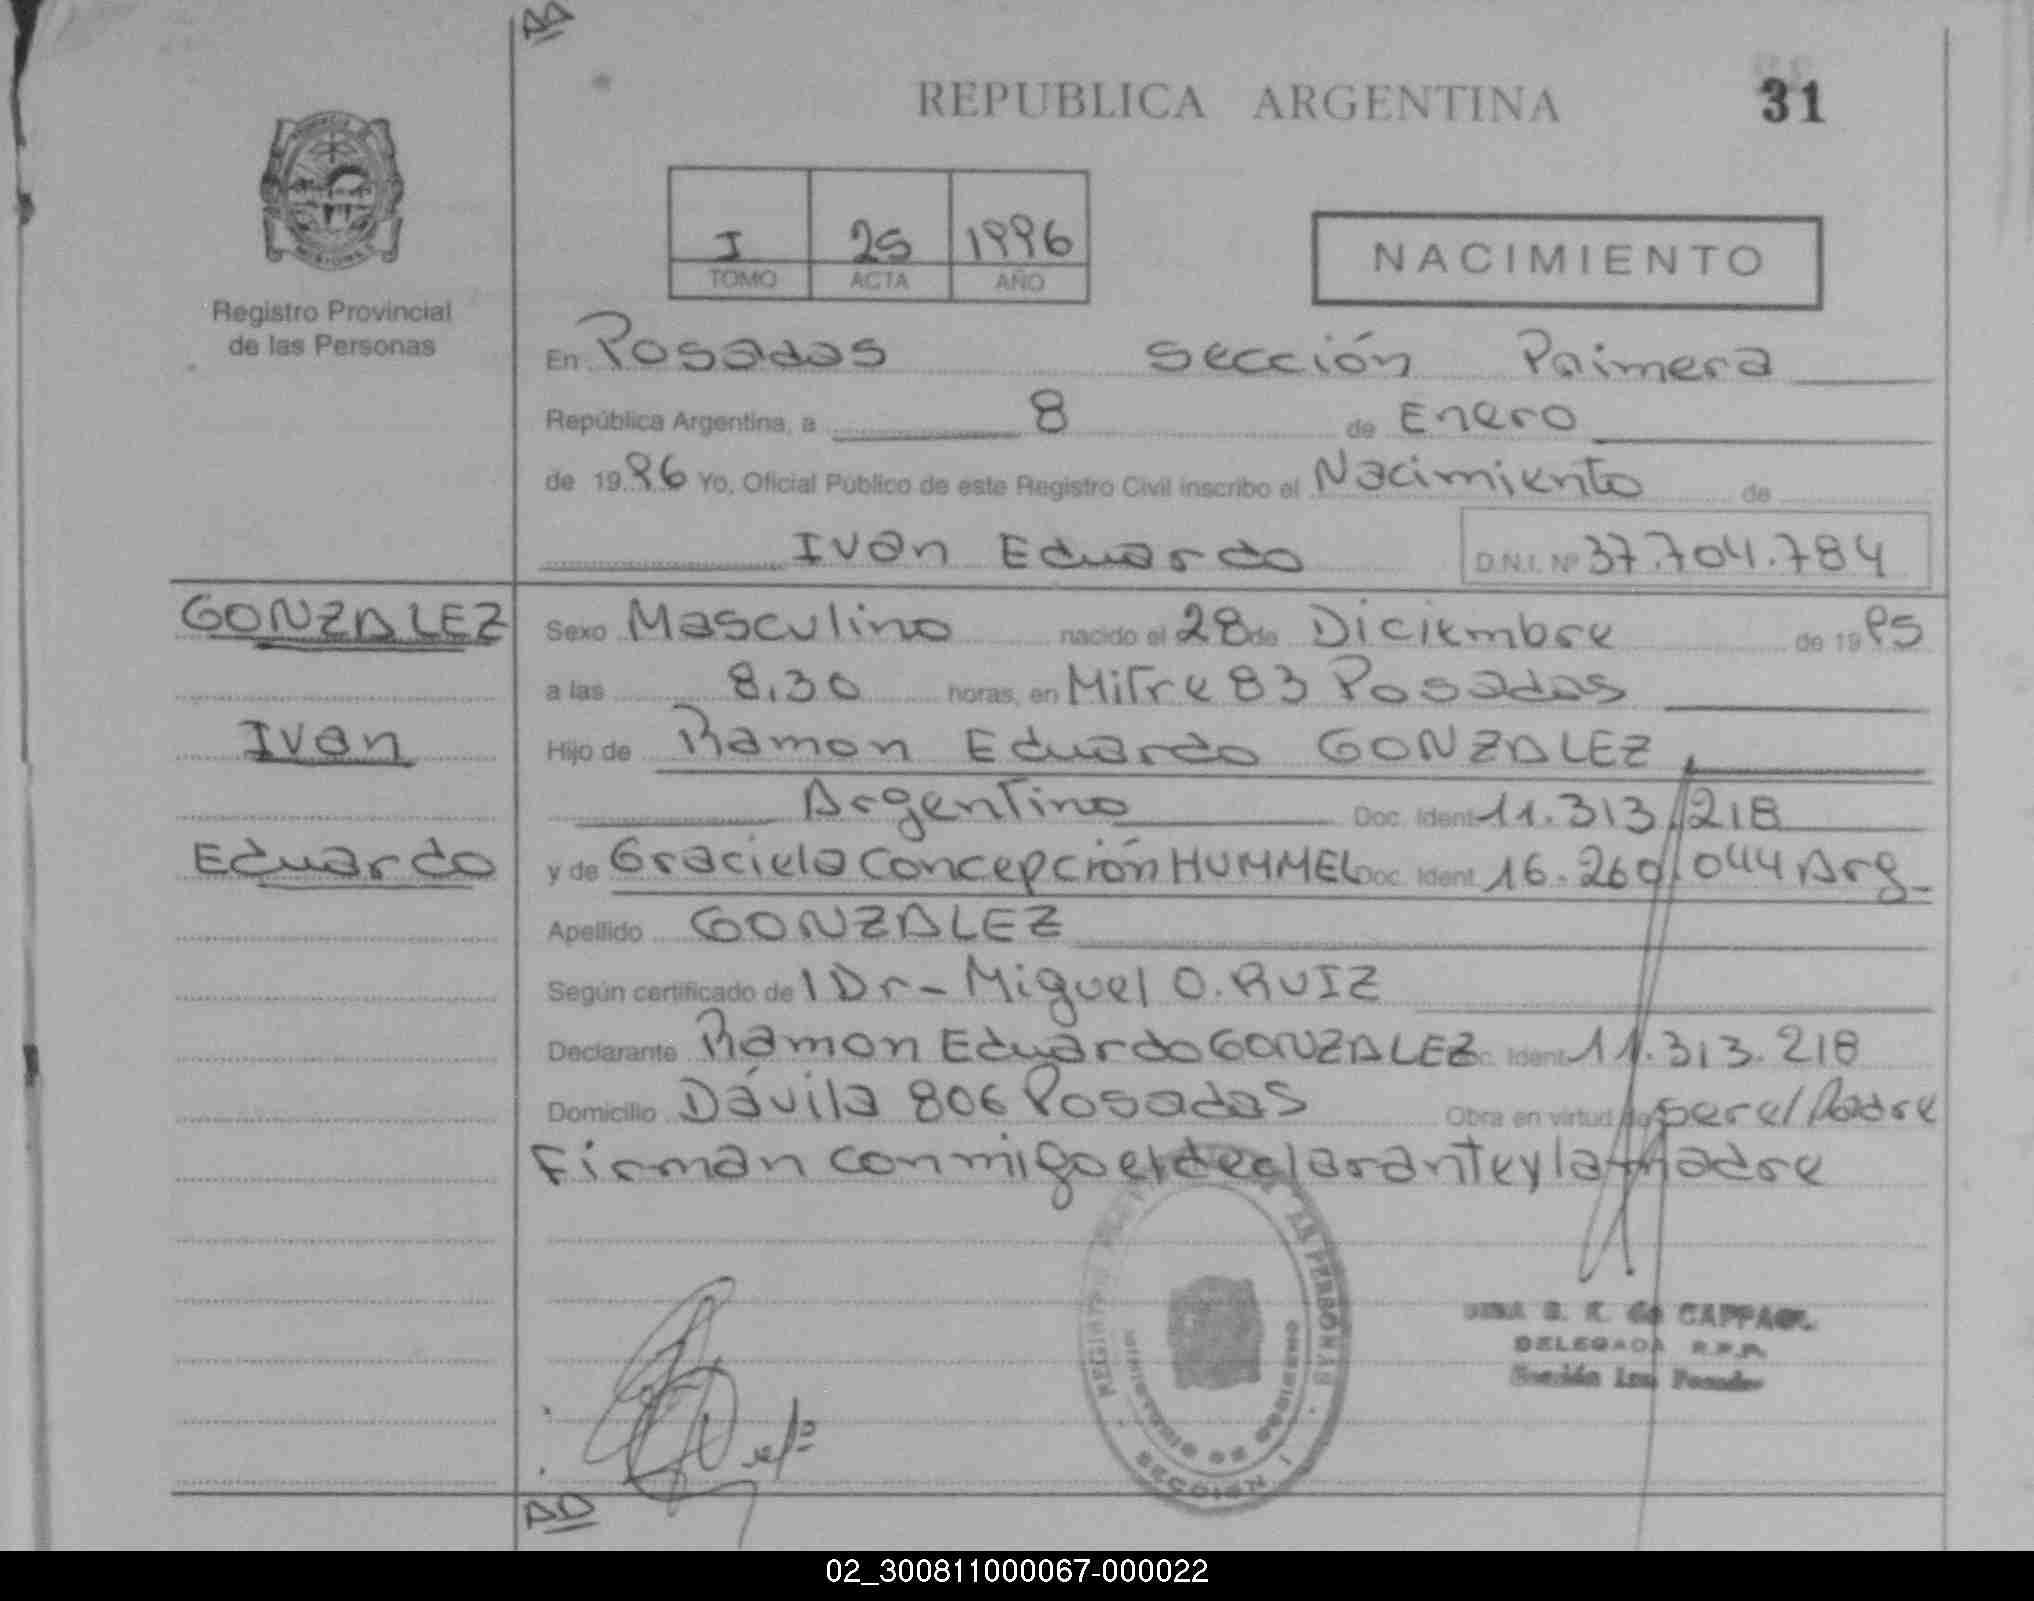 AA
REPUBLICA ARGENTINA
31
I 25 1996
TOMO ACTA AÑO
NACIMIENTO
Registro Provincial
de las Personas
En Posadas sección Primera
República Argentina, a 8 de Enero
de 1996 Yo, Oficial Público de este Registro Civil inscribo el Nacimiento de
Ivan Eduardo D.N.I. Nº 37.704.784
GONZALEZ
Ivan
Eduardo
Sexo Masculino nacido el 28 de Diciembre de 1995
a las 8,30 horas, en Mitre 83 Posadas
Hijo de Ramon Eduardo GONZALEZ
Argentino Doc. Ident 11.313.218
y de Graciela Concepción HUMMEL Doc. Ident 16.260.044 Arg.
Apellido GONZALEZ
Según certificado de l Dr - Miguel O. RUIZ
Declarante Ramon Eduardo GONZALEZ Doc. Ident 11.313.218
Domicilio Dávila 806 Posadas Obra en virtud de ser el Padre
Firman conmigo el declarante y la madre
REGISTRO LAS PERSONAS
MISIONES
de CAPPA
DELEGADA R.P.P.
Sección 1ra Posadas
AD
02_300811000067-000022